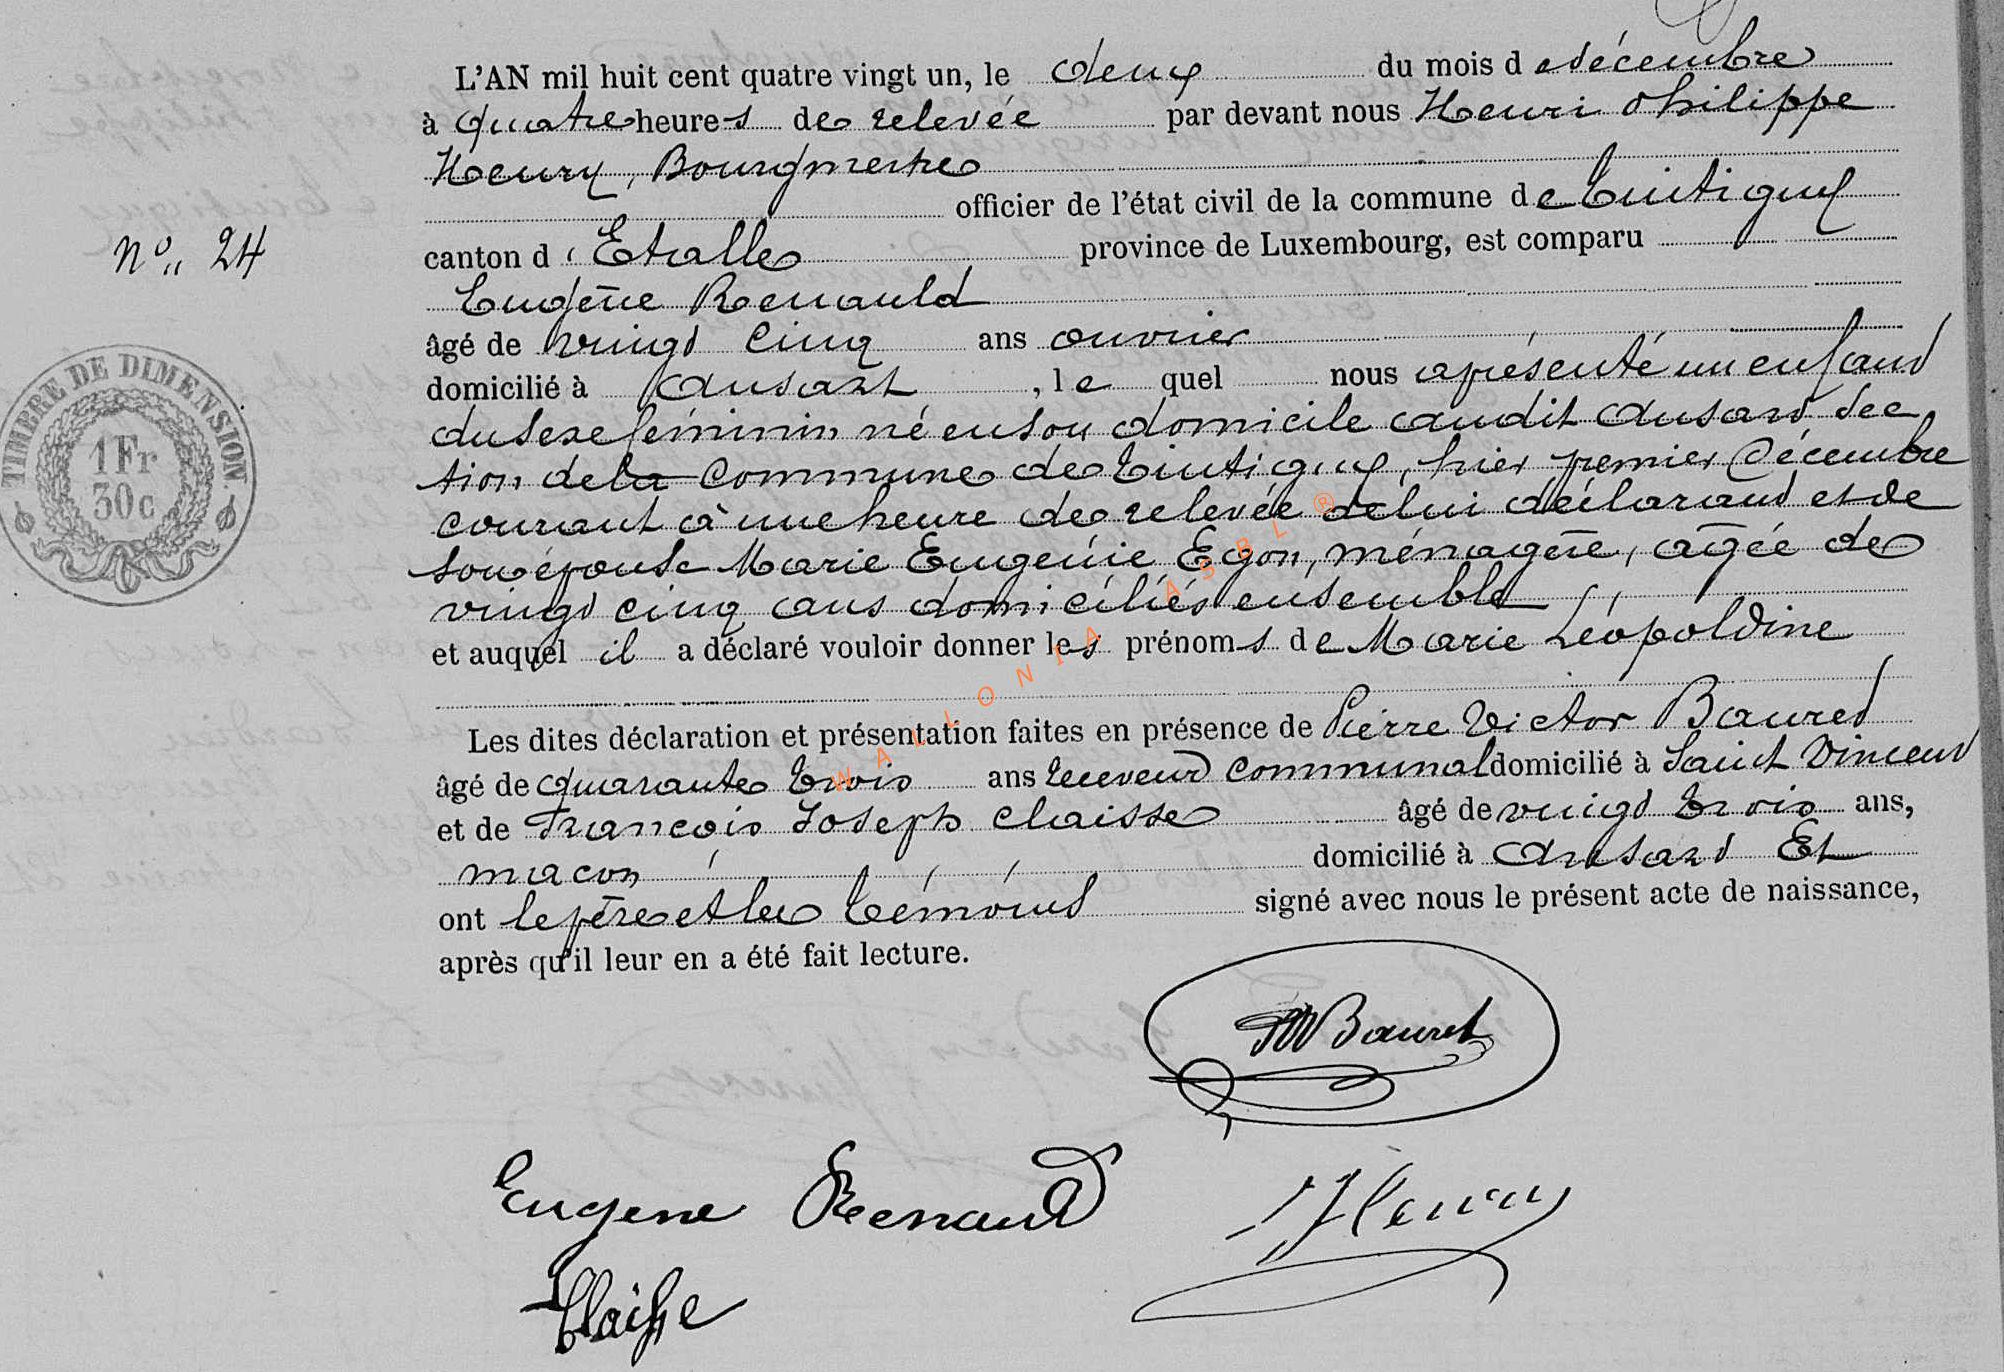 L'AN mil huit cent quatre vingt un, le deux du mois de décembre
à quatre heures de relevée par devant nous Henri Philippe
Henry, Bourgmestre
officier de l'état civil de la commune de Tintigny
N° 24
canton d'Etalle province de Luxembourg, est comparu
Eugène Renauld
âgé de vingt cinq ans ouvrier
domicilié à Ansart, le quel nous a présenté un enfant
du sexe féminin né en son domicile audit Ansart sec
tion de la commune de Tintigny, hier premier Décembre
courant à une heure de relevée de lui déclarant et de
son épouse Marie Eugénie Egon, ménagère, agée de
vingt cinq ans domiciliés ensemble
et auquel il a déclaré vouloir donner les prénoms de Marie Léopoldine
Les dites déclaration et présentation faites en présence de Pierre Victor Bauret
âgé de quarante trois ans receveur communal domicilié à Saint Vincent
et de François Joseph Claisse âgé de vingt trois ans,
macon domicilié à Ansart Et
ont le père et les témoins signé avec nous le présent acte de naissance,
après qu'il leur en a été fait lecture.
TIMBRE DE DIMENSION
1 Fr
30 c
WALLONIA ASBL ®
PV Bauret
Eugene Renauld
Henry
Claisse